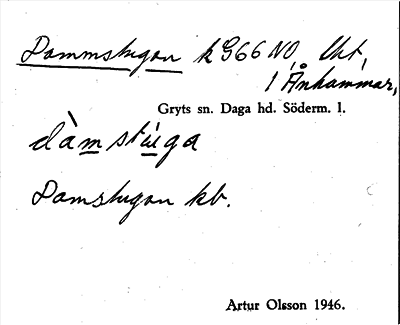 Dammstugan k G66 NO, Uht,
1 Ånhammar,
Gryts sn. Daga hd. Söderm. l.
dàmstúga
Damstugan kb.
Artur Olsson 1946.